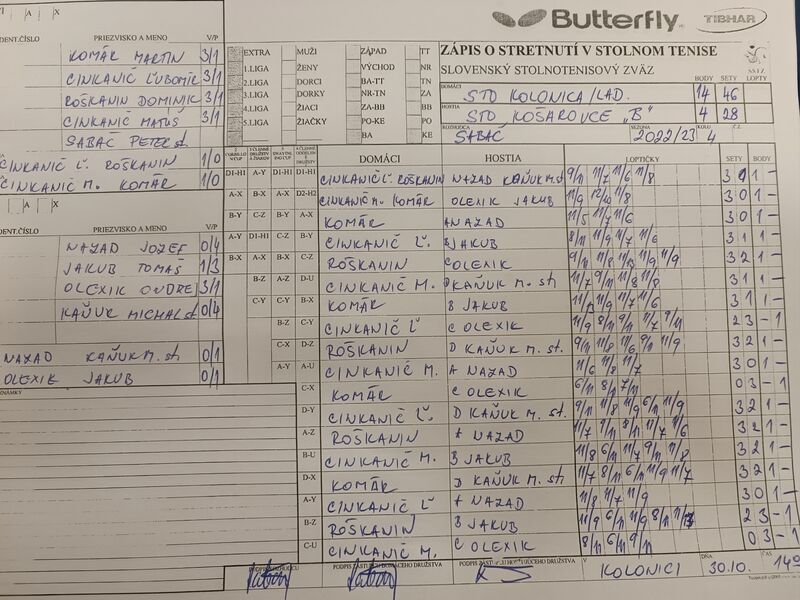 Butterfly
TIBHAR
ZÁPIS O STRETNUTÍ V STOLNOM TENISE
SLOVENSKÝ STOLNOTENISOVÝ ZVÄZ
SSTZ
BODY SETY LOPTY
DOMÁCI STO KOLONICA/LAD. 14 46
HOSTIA STO KOŠAROVCE "B" 4 28
ROZHODCA SABAČ SEZÓNA 2022/23 KOLO 4 Č.
A X
DENT.ČÍSLO PRIEZVISKO A MENO V/P
KOMÁR MARTIN 3/1
CINKANIČ ĽUBOMÍR 3/1
ROŠKANIN DOMINIK 3/1
CINKANIČ MATÚŠ 3/1
SABAČ PETER st.
CINKANIČ Ľ. ROŠKANIN 1/0
CINKANIČ M. KOMÁR 1/0
A X
DENT.ČÍSLO PRIEZVISKO A MENO V/P
NAZAD JOZEF 0/4
JAKUB TOMÁŠ 1/3
OLEXIK ONDREJ 3/1
KAŇUK MICHAL st 0/4
NAZAD KAŇUK M. st 0/1
OLEXIK JAKUB 0/1
EXTRA MUŽI ZÁPAD TT
1.LIGA ŽENY VÝCHOD NR
2.LIGA DORCI BA-TT ZA
3.LIGA DORKY NR-TN TN
4.LIGA ŽIACI ZA-BB BB
5.LIGA ŽIAČKY PO-KE PO
BA KE
DOMÁCI HOSTIA LOPTIČKY SETY BODY
D1-H1 A-Y D1-H1 D1-H1 CINKANIČ Ľ. ROŠKANIN NAZAD KAŇUK M. st 9/11 11/7 11/6 11/8 3 1 1 -
A-X B-X A-X D2-H2 CINKANIČ M. KOMÁR OLEXIK JAKUB 11/9 12/10 11/8 3 0 1 -
B-Y C-Z B-Y A-X KOMÁR A NAZAD 11/5 11/7 11/6 3 0 1 -
A-Y D1-H1 C-Z B-Y CINKANIČ Ľ. B JAKUB 8/11 11/9 11/7 11/6 3 1 1 -
B-X A-X B-X C-Z ROŠKANIN C OLEXIK 3 2 1 -
B-Z A-Z D-U CINKANIČ M. D KAŇUK M. st 11/7 9/11 11/8 11/8 3 1 1 -
C-Y C-Y B-X KOMÁR B JAKUB 3 1 1 -
B-Z C-Y CINKANIČ Ľ C OLEXIK 11/9 8/11 9/11 11/7 9/11 2 3 - 1
C-X D-Z ROŠKANIN D KAŇUK M. st. 3 2 1 -
A-Y A-U CINKANIČ M. A NAZAD 11/6 11/8 11/7 3 0 1 -
C-X KOMÁR C OLEXIK 6/11 8/11 7/11 0 3 - 1
D-Y CINKANIČ Ľ. D KAŇUK M. st. 9/11 11/8 11/9 6/11 11/9 3 2 1 -
A-Z ROŠKANIN A NAZAD 11/7 9/11 8/11 11/7 11/6 3 2 1 -
B-U CINKANIČ M. B JAKUB 11/8 6/11 11/7 9/11 11/8 3 2 1 -
D-X KOMÁR D KAŇUK st 11/7 8/11 6/11 11/9 11/7 3 2 1 -
A-Y CINKANIČ Ľ A NAZAD 11/8 11/7 11/9 3 0 1 -
B-Z ROŠKANIN B JAKUB 2 3 - 1
C-U CINKANIČ M. C OLEXIK 8/11 6/11 9/11 0 3 - 1
PODPIS ROZHODCU PODPIS ZÁSTUPCU DOMÁCEHO DRUŽSTVA PODPIS ZÁSTUPCU HOSŤUJÚCEHO DRUŽSTVA V KOLONICI DŇA 30.10. ČAS